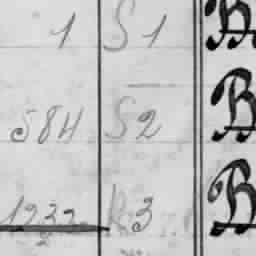 1 S 1 B
584 S2 B
1232 R3 B